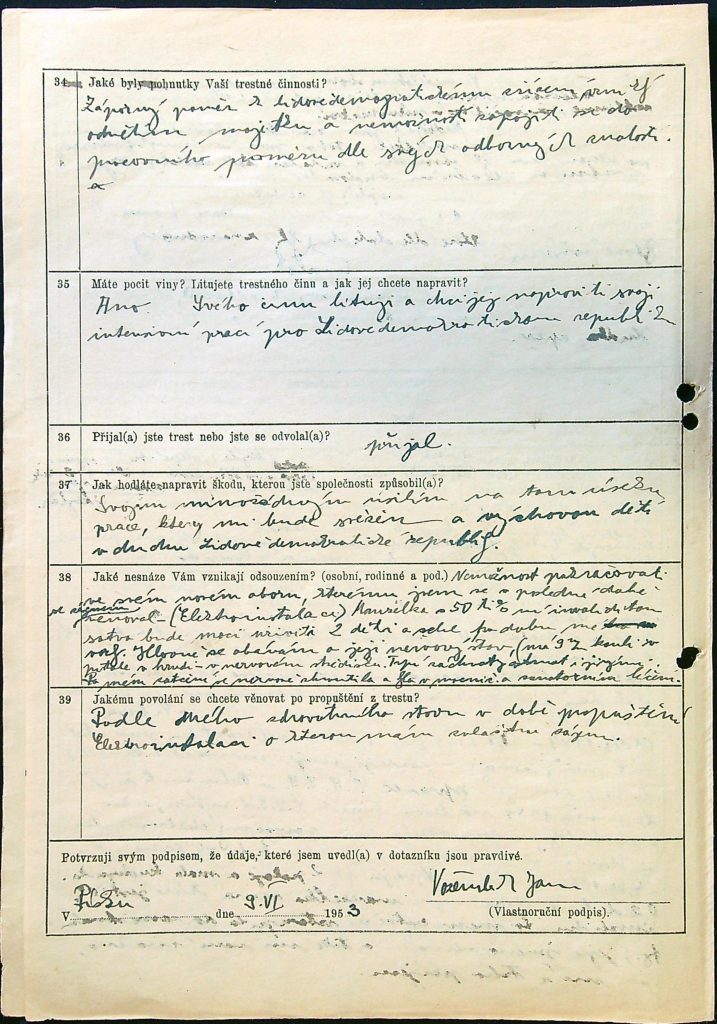 34 Jaké byly pohnutky Vaší trestné činnosti?
Záporný poměr k lidovědemokratickému zřízení
odnětím majetku a nemožnost zapojit se do
pracovního poměru dle svých odborných znalostí.
35 Máte pocit viny? Litujete trestného činu a jak jej chcete napravit?
Ano. Svého činu lituji a chci jej napraviti svojí
intensivní prací pro Lidovědemokratickou republiku
36 Přijal(a) jste trest nebo jste se odvolal(a)?
přijal.
37 Jak hodláte napravit škodu, kterou jste společnosti způsobil(a)?
Svojím úsilím na tom úseku
práce, který mi bude svěřen a výchovou dětí
v duchu Lidově demokratické republiky.
38 Jaké nesnáze Vám vznikají odsouzením? (osobní, rodinné a pod.) Nemožnost pokračovat
ve svém novém oboru, kterému jsem se v poslední době
se zájmem věnoval – (Elektroinstalace) Manželka s 50 %
sotva bude moci uživiti 2 děti a sebe po dobu mé
Hlavně se obávám o její nervový stav, (má
v hrudi – v nervovém středisku.
Po mém zatčení se nervově zhroutila a byla v nemocnici a sanatorním léčení.
39 Jakému povolání se chcete věnovat po propuštění z trestu?
Podle mého zdravotního stavu v době propuštění
Elektroinstalaci o kterou mám zvláštní zájem.
Potvrzuji svým podpisem, že údaje, které jsem uvedl(a) v dotazníku jsou pravdivé.
V Plzni dne 9.VI 1953
(Vlastnoruční podpis).